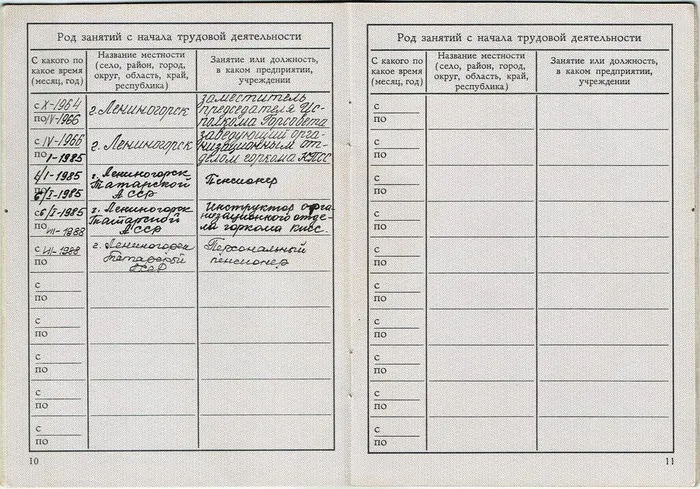 Род занятий с начала трудовой деятельности
С какого по
какое время
(месяц, год)
Название местности
(село, район, город,
округ, область, край,
республика)
Занятие или должность,
в каком предприятии,
учреждении
с X-1964
по IV-1966
г. Лениногорск
заместитель
председателя Ис-
полкома Горсовета
с IV-1966
по I-1985
г. Лениногорск
заведующий орга-
низационным от-
делом горкома КПСС
I-1985
I-1985
г. Лениногорск
Татарской
АССР
Пенсионер
с I-1985
по VII-1988
г. Лениногорск
Татарской
АССР
Инструктор орга-
низационного отде-
ла горкома КПСС.
с VII-1988
по
г. Лениногорск
Татарской
АССР
Персональный
пенсионер
с
по
с
по
с
по
с
по
с
по
10
Род занятий с начала трудовой деятельности
С какого по
какое время
(месяц, год)
Название местности
(село, район, город,
округ, область, край,
республика)
Занятие или должность,
в каком предприятии,
учреждении
с
по
с
по
с
по
с
по
с
по
с
по
с
по
с
по
с
по
с
по
11